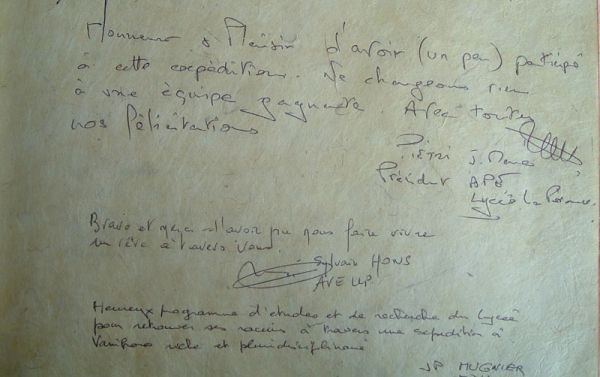 Honneur & Plaisir d'avoir (un peu) participé
à cette expédition. Ne changeons rien
à une équipe gagnante. Avec toutes
nos félicitations
J. Marc
Président APE
Lycée La Pérouse
Bravo et merci d'avoir pu nous faire vivre
un rêve à travers vous.
Sylvain HONS
Heureux programme d'études et de recherche du Lycée
pour retrouver ses racines à travers une expédition à
Vanikoro riche et pluridisciplinaire
JP MUGNIER